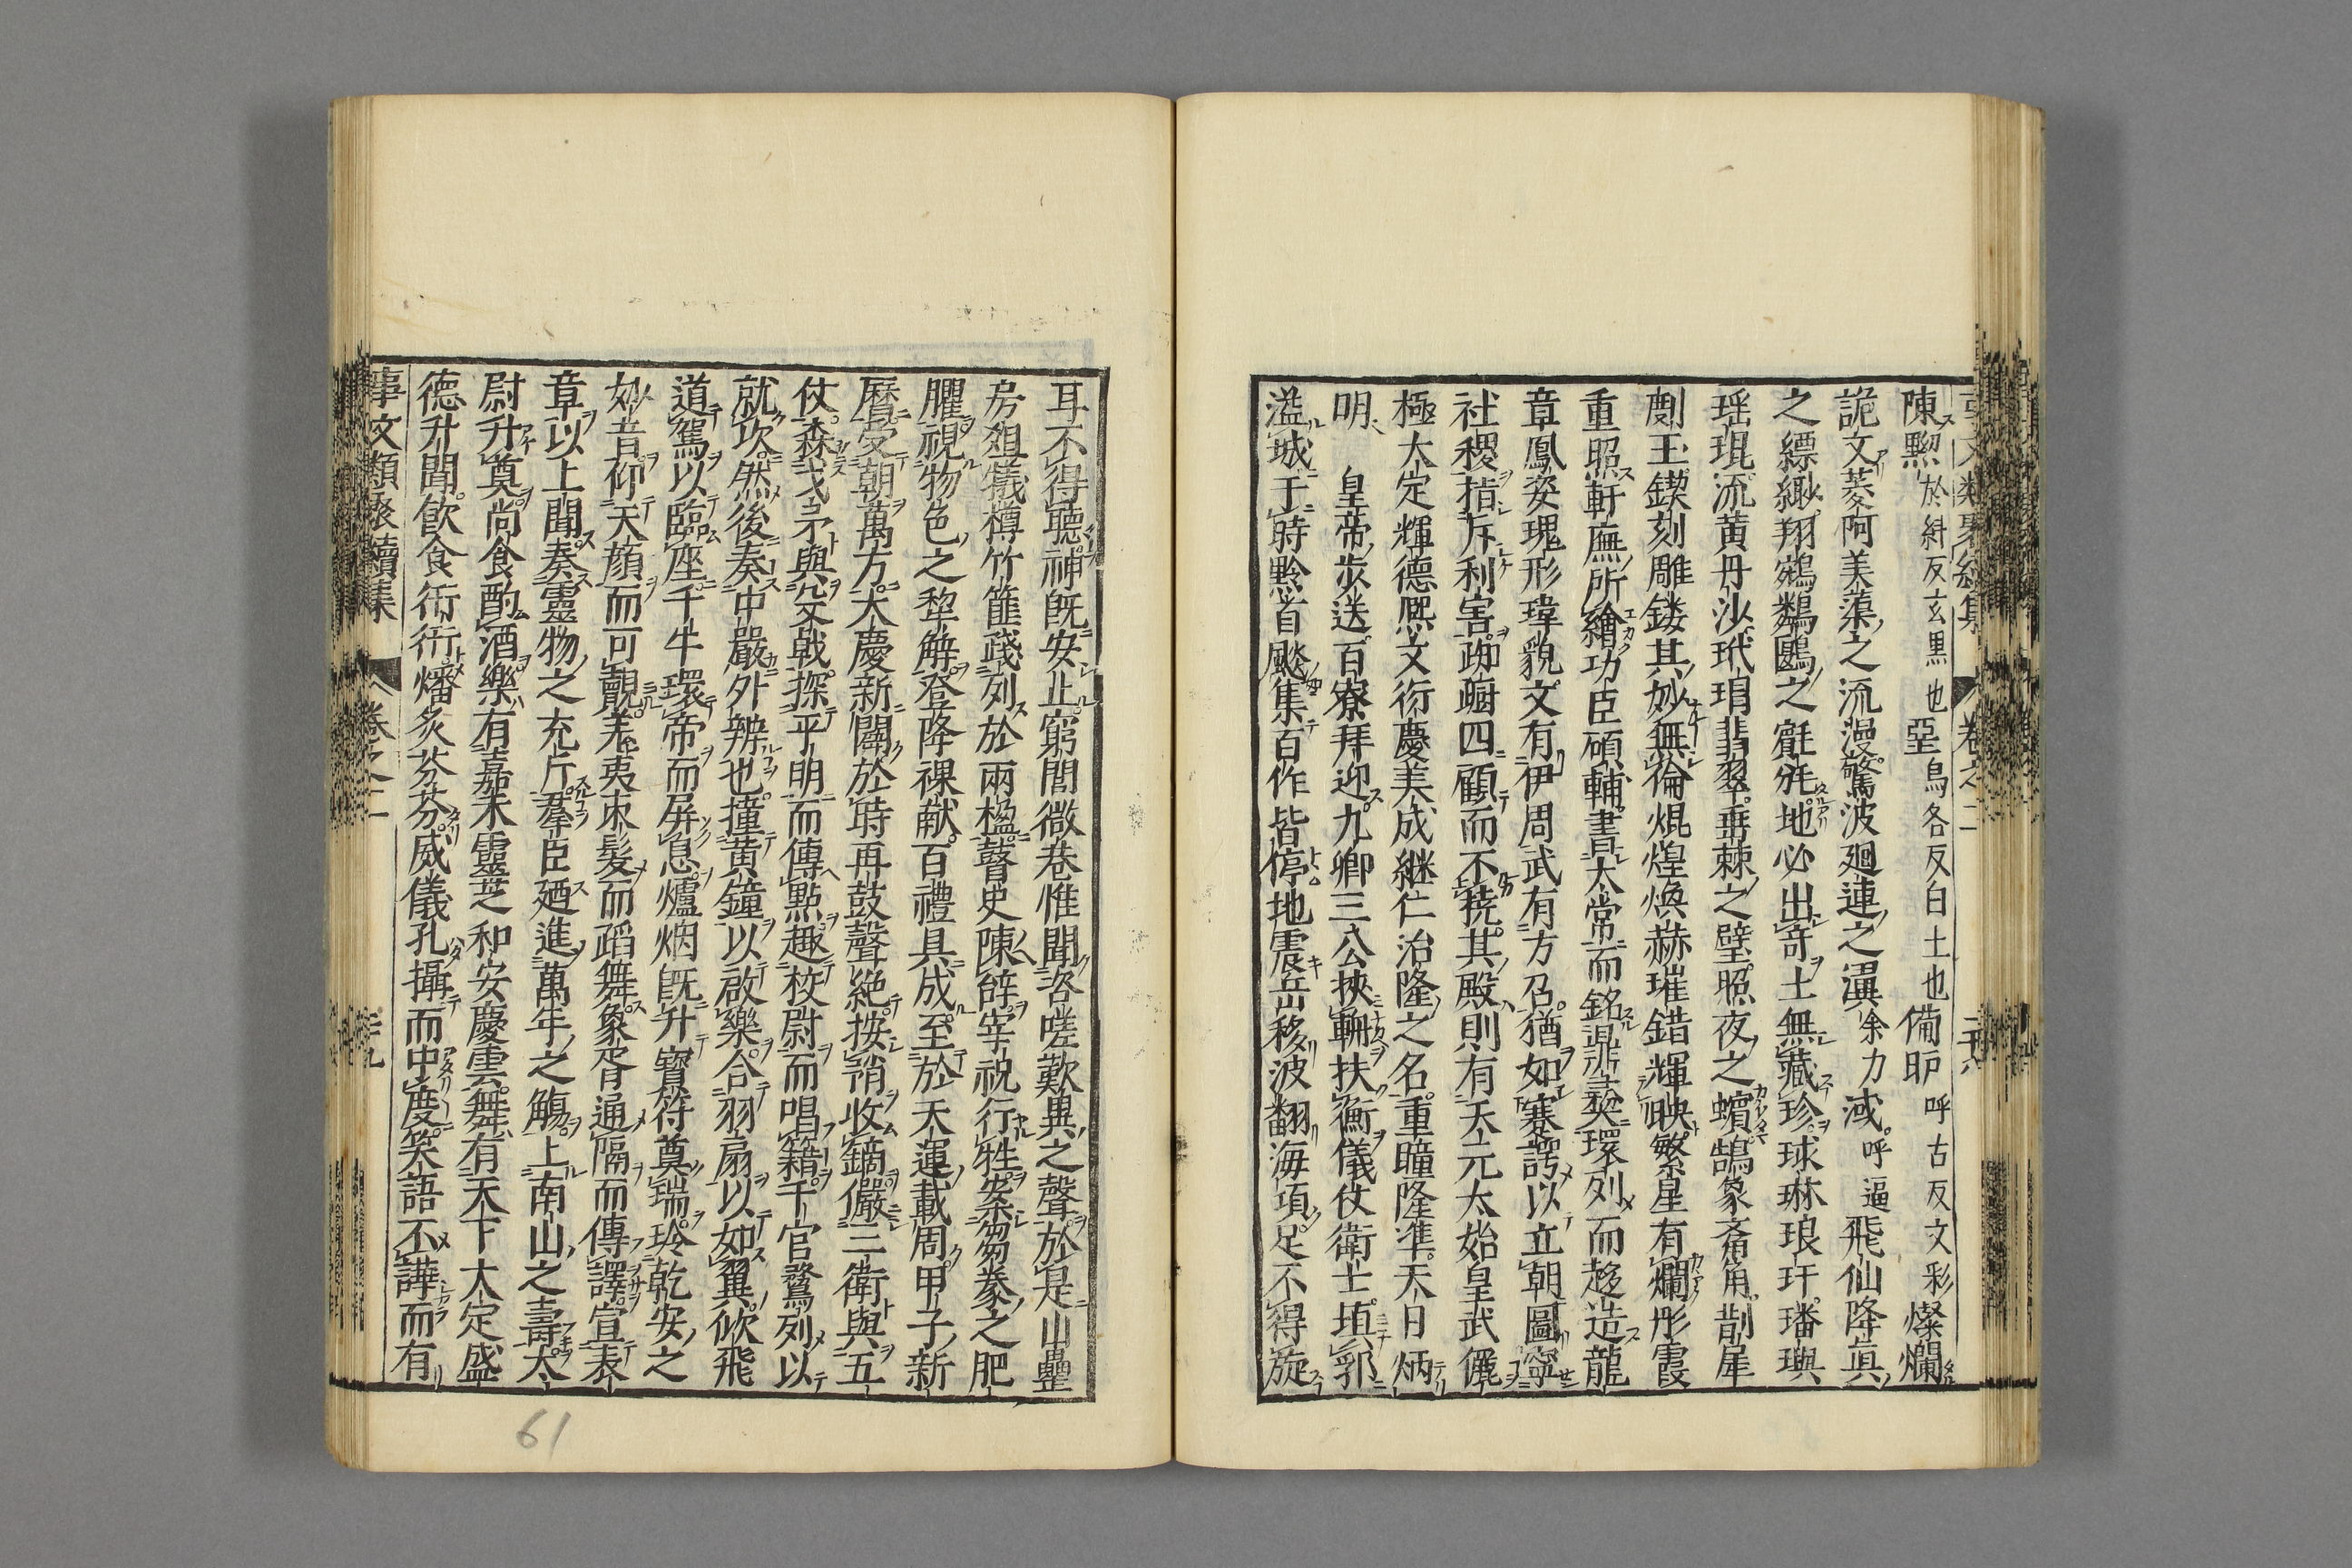 陳黝於紏反玄黒也堊烏各反白土也備昈呼古反文彩燦爛
詭文菱阿美蕖之流漫驚波廻連之潩余力淢呼逼飛仙降眞
之縹緲翔鵷鷞鷗之毵毵地必出奇土無藏珍球琳琅玕璠璵
瑶琨流黄丹沙玳瑁翡翠垂棘之璧照夜之蠙鵠象齊角㓨犀
劘玉鍥刻雕鏤其妙無倫焜煌煥赫璀錯輝映繁星有爛彤霞
重照軒廡所繪功臣碩輔書大常而銘鼎彜環列而趍造龍
章鳳姿瑰形瑋貌文有伊周武有方召猶如謇諤以立朝圖寧
社稷指斥利害踟蹰四顧而不撓其殿則有天元太始皇武儷
極大定輝德熈文衍慶美成継仁治隆之名重瞳隆準天日炳
明皇帝歩送百寮拜迎九卿三公挾輈扶衡儀仗衛士塡郛
溢城于時黔首飈集百作皆停地震岳移波翻海項足不得旋
耳不得聽神旣安止窮閭微巷惟聞咨嗟歎異之聲於是山罍
房俎犧樽竹篚踐列於兩楹瞽史陳辞宰祝行牲案芻豢之肥
臞視物色之犂觧登降祼献百禮具成至於天運載周甲子新
曆受朝萬方大慶新闢於時再鼓聲絶按䂎收鏑儼三衛與五
仗森戈矛與殳戟探平明而傳點趣校尉而唱籍千官鵞列以
就次然後奏中嚴外辨也撞黄鐘以啟樂合羽扇以如翼佽飛
道駕以臨座千牛環帝而屏息爐烟旣升寳符奠瑞玲乾安之
妙音仰天顔而可覿羌夷束髮而蹈舞象胥通隔而傳譯宣表
章以上聞奏靈物之充斥羣臣廼進萬年之觴上南山之壽太
尉升奠尚食酌酒樂有嘉禾靈芝和安慶雲舞有天下大定盛
德升聞飮食衎衎燔炙芬芬威儀孔攝而中度笑語不譁而有
事文類聚續集 卷之二 二十九